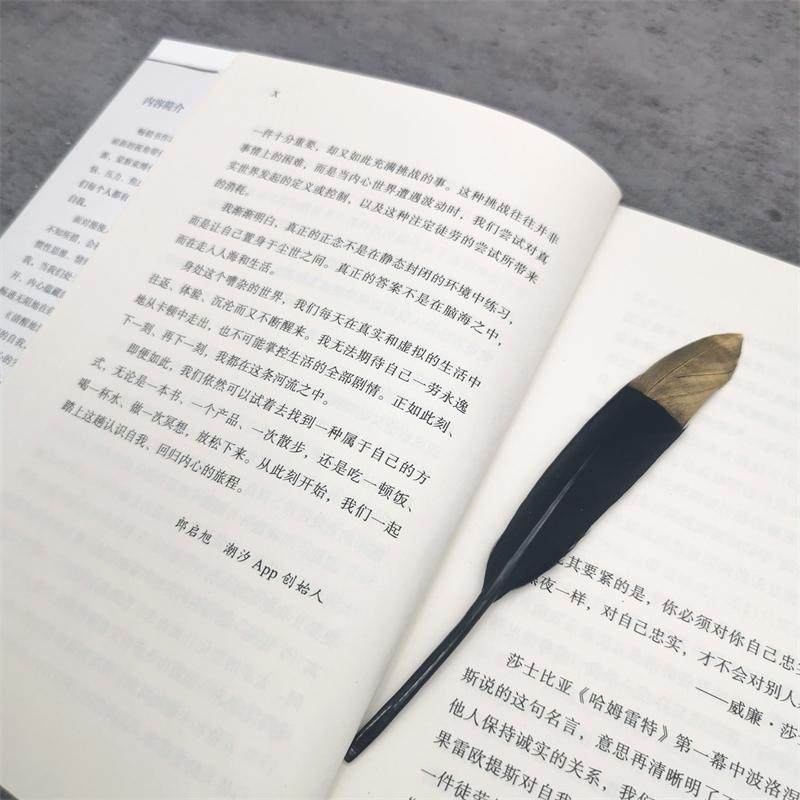 内容简介
X
一件十分重要，却又如此充满挑战的事。这种挑战往往并非
事情上的困难，而是当内心世界遭遇波动时，我们尝试对真
实世界发起的定义或控制，以及这种注定徒劳的尝试所带来
的消耗。
我渐渐明白，真正的正念不是在静态封闭的环境中练习，
而是让自己置身于尘世之间。真正的答案不是在脑海之中，
而在走入人海和生活。
身处这个嘈杂的世界，我们每天在真实和虚拟的生活中
往返、体验、沉沦而又不断醒来。我无法期待自己一劳永逸
地从卡顿中走出，也不可能掌控生活的全部剧情。正如此刻、
下一刻、再下一刻，我都在这条河流之中。
即便如此，我们依然可以试着去找到一种属于自己的方
式，无论是一本书、一个产品、一次散步，还是吃一顿饭、
喝一杯水、做一次冥想，放松下来。从此刻开始，我们一起
踏上这趟认识自我、回归内心的旅程。
郎启旭 潮汐 App 创始人
其要紧的是，你必须对你自己忠
夜一样，对自己忠实，才不会对别人
——威廉·莎
莎士比亚《哈姆雷特》第一幕中波洛涅
斯说的这句名言，意思再清晰明了
他人保持诚实的关系，我
果雷欧提斯对自
一件徒